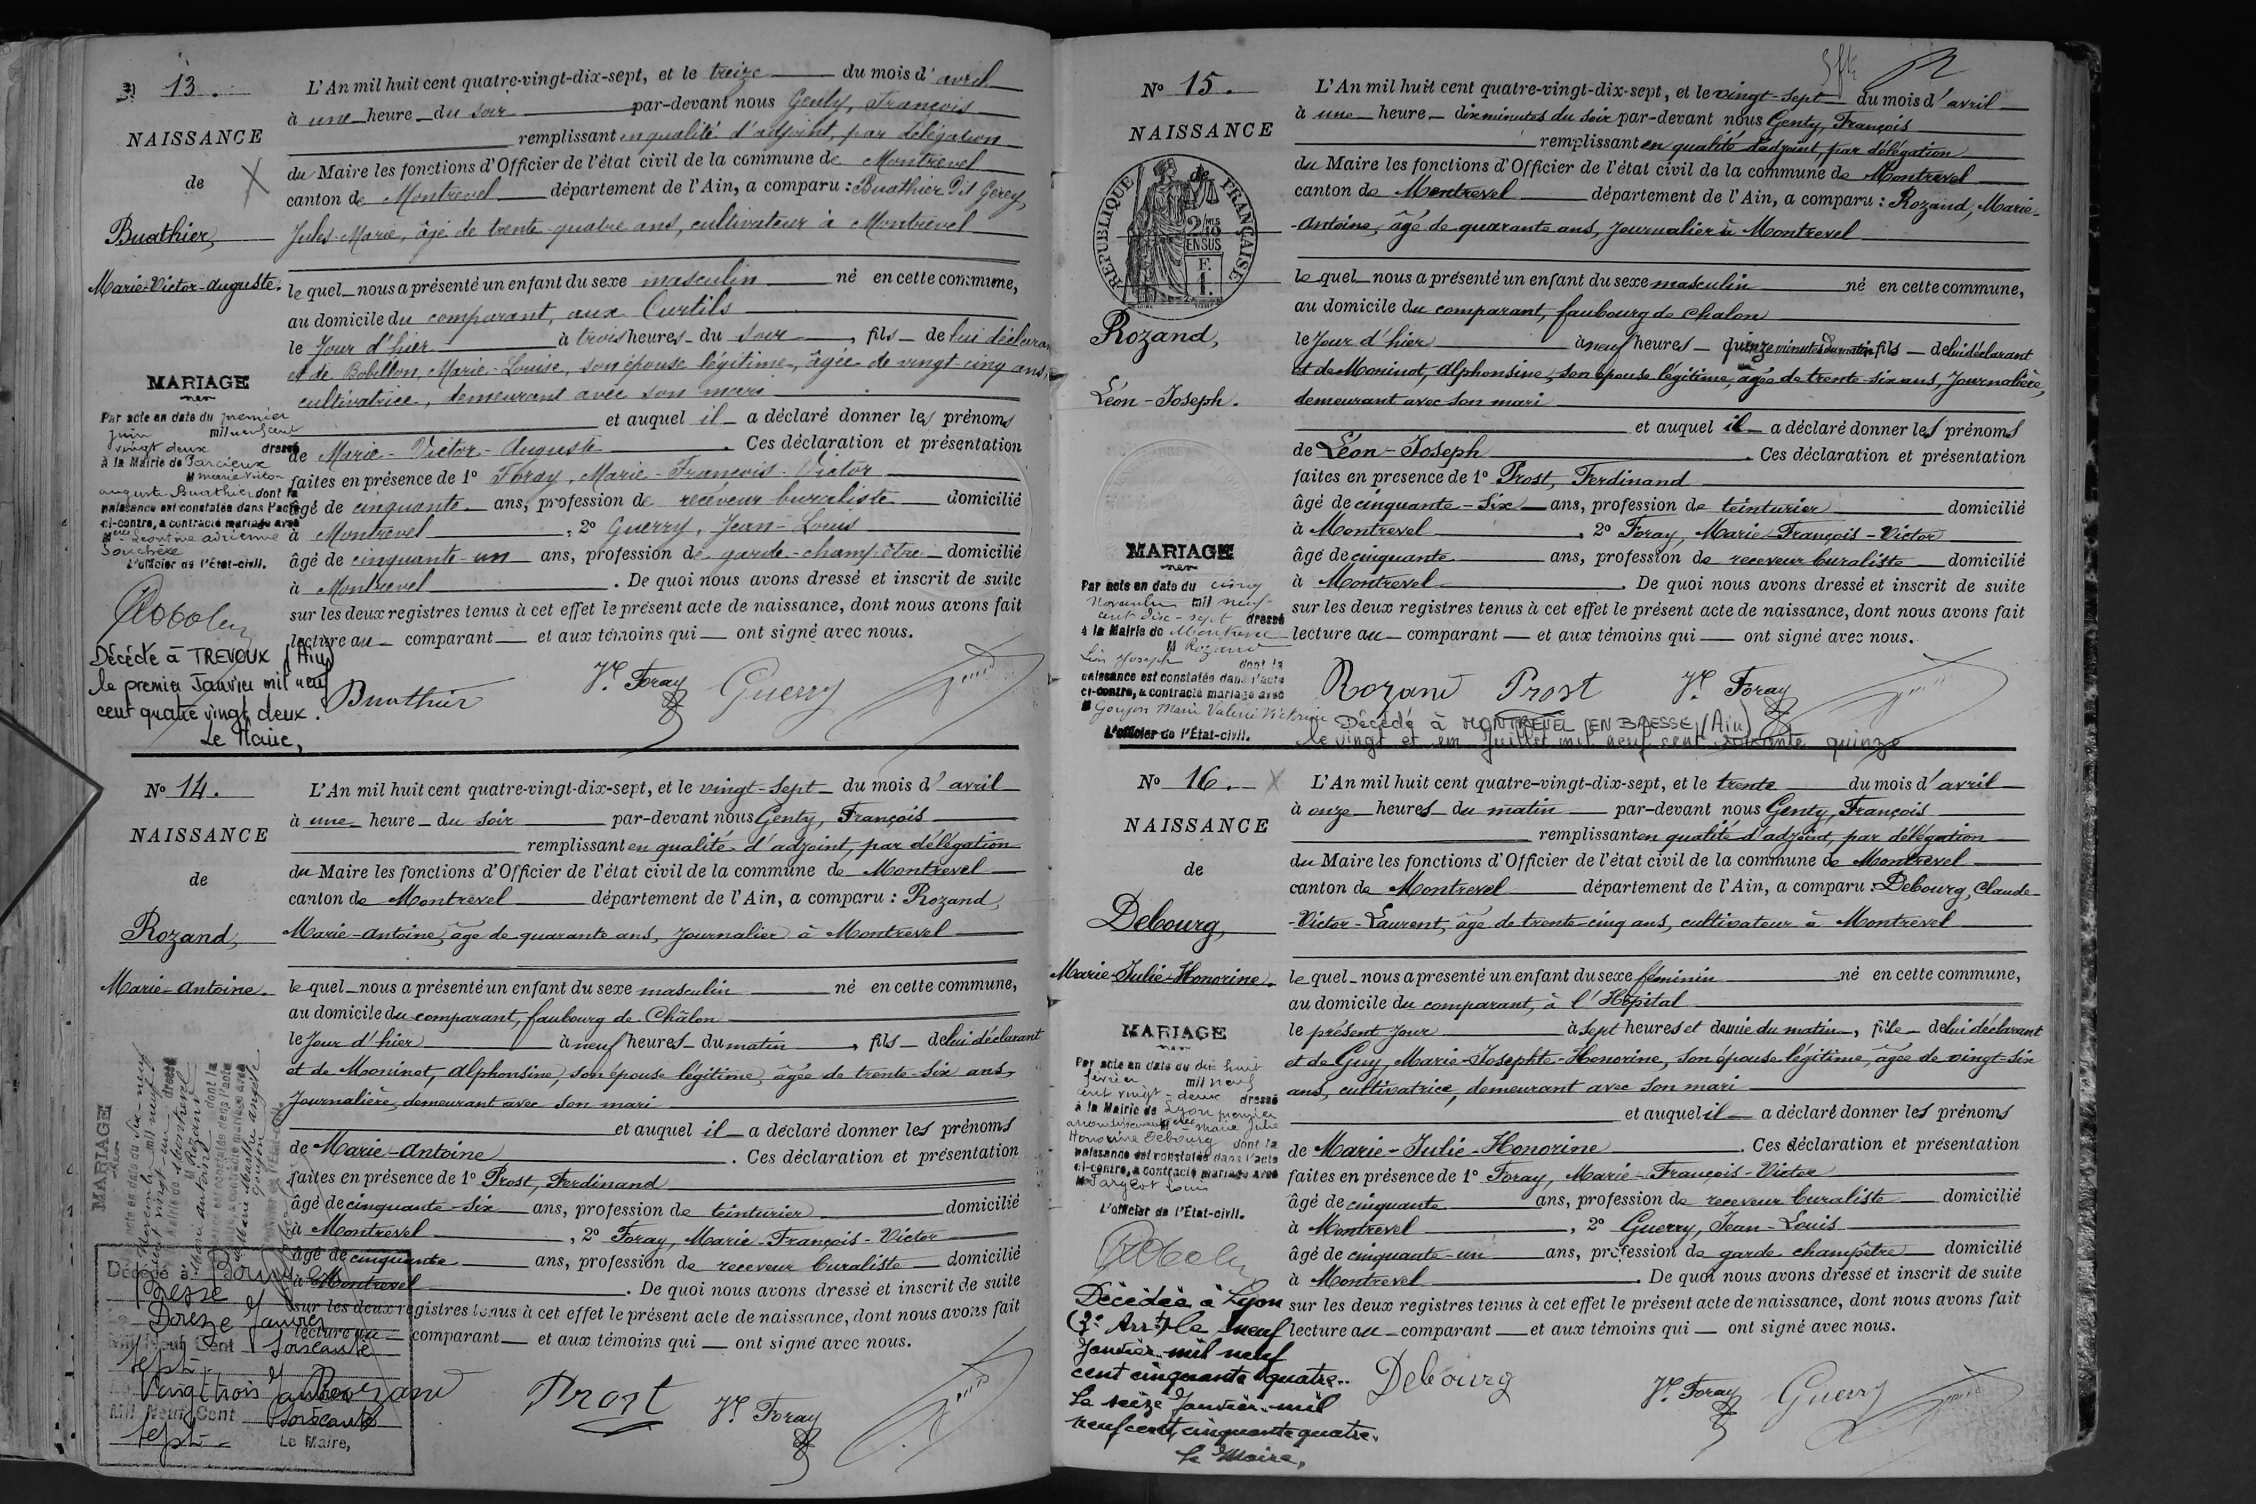 13.
NAISSANCE
de
Buathier,
Marie-Victor-Auguste.
MARIAGE
Par acte en date du premier
Juin mil neuf cent
vingt deux dressé
à la Mairie de Parcieux
M Marie Victor
Auguste Buathier dont la
naissance est constatée dans l'acte
ci-contre, a contracté mariage avec
Léontine Adrienne
Souchère
L'officier de l'État-civil.
Décédé à TREVOUX (Ain)
le premier Janvier mil neuf
cent quatre vingt deux.
Le Maire,
L'An mil huit cent quatre-vingt-dix-sept, et le treize du mois d'avril
à une heure du soir par-devant nous Genty, François
remplissant en qualité d'adjoint, par délégation
du Maire les fonctions d'Officier de l'état civil de la commune de Montrevel
canton de Montrevel département de l'Ain, a comparu : Buathier Dit Gerey,
Jules-Marie, âgé de trente-quatre ans, cultivateur à Montrevel
le quel nous a présenté un enfant du sexe masculin né en cette commune,
au domicile du comparant, aux Curtils
le Jour d'hier à trois heures du soir, fils de lui déclarant
et de Bobillon, Marie-Louise, son épouse légitime, âgée de vingt-cinq ans,
cultivatrice, demeurant avec son mari
et auquel il a déclaré donner les prénoms
de Marie-Victor-Auguste. Ces déclaration et présentation
faites en présence de 1º Foray, Marie-François-Victor
âgé de cinquante ans, profession de receveur buraliste domicilié
à Montrevel, 2º Guerry, Jean-Louis
âgé de cinquante-un ans, profession de garde-champêtre domicilié
à Montrevel. De quoi nous avons dressé et inscrit de suite
sur les deux registres tenus à cet effet le présent acte de naissance, dont nous avons fait
lecture au comparant et aux témoins qui ont signé avec nous.
Buathier Vr Foray Guerry
Nº 14.
NAISSANCE
de
Rozand,
Marie-Antoine.
MARIAGE
Marie Antoine
Goujon
L'An mil huit cent quatre-vingt-dix-sept, et le vingt-sept du mois d'avril
à une heure du soir par-devant nous Genty, François
remplissant en qualité d'adjoint, par délégation
du Maire les fonctions d'Officier de l'état civil de la commune de Montrevel
canton de Montrevel département de l'Ain, a comparu : Rozand,
Marie-Antoine, âgé de quarante ans, Journalier à Montrevel
le quel nous a présenté un enfant du sexe masculin né en cette commune,
au domicile du comparant, faubourg de Châlon
le Jour d'hier à neuf heures du matin, fils de lui déclarant
et de Moninot, Alphonsine, son épouse légitime, âgée de trente-six ans,
Journalière, demeurant avec son mari
et auquel il a déclaré donner les prénoms
de Marie-Antoine. Ces déclaration et présentation
faites en présence de 1º Prost, Ferdinand
âgé de cinquante-six ans, profession de teinturier domicilié
à Montrevel, 2º Foray, Marie-François-Victor
âgé de cinquante ans, profession de receveur buraliste domicilié
à Montrevel. De quoi nous avons dressé et inscrit de suite
sur les deux registres tenus à cet effet le présent acte de naissance, dont nous avons fait
lecture au comparant et aux témoins qui ont signé avec nous.
Décédé à Bourg en
Bresse
Douze Janvier
Mil Neuf Cent Soixante
sept
Vingt trois Janvier
Mil Neuf Cent Soixante
sept
Le Maire,
Rozand Prost Vr Foray
Nº 15.
NAISSANCE
de
RÉPUBLIQUE FRANÇAISE
2/10 EN SUS
F.
1.
Rozand,
Léon-Joseph.
MARIAGE
Par acte en date du cinq
Novembre mil neuf
cent dix-sept dressé
à la Mairie de Montrevel
M Rozand
Léon Joseph dont la
naissance est constatée dans l'acte
ci-contre, a contracté mariage avec
M Goujon Marie Valérie Victorine
L'officier de l'État-civil.
L'An mil huit cent quatre-vingt-dix-sept, et le vingt-sept du mois d'avril
à une heure dix minutes du soir par-devant nous Genty, François
remplissant en qualité d'adjoint, par délégation
du Maire les fonctions d'Officier de l'état civil de la commune de Montrevel
canton de Montrevel département de l'Ain, a comparu : Rozand, Marie-
-Antoine, âgé de quarante ans, Journalier à Montrevel
le quel nous a présenté un enfant du sexe masculin né en cette commune,
au domicile du comparant, faubourg de Chalon
le Jour d'hier à neuf heures quinze minutes du matin fils de lui déclarant
et de Moninot, Alphonsine, son épouse légitime, âgée de trente-six ans, Journalière,
demeurant avec son mari
et auquel il a déclaré donner les prénoms
de Léon-Joseph. Ces déclaration et présentation
faites en présence de 1º Prost, Ferdinand
âgé de cinquante-six ans, profession de teinturier domicilié
à Montrevel, 2º Foray, Marie-François-Victor
âgé de cinquante ans, profession de receveur buraliste domicilié
à Montrevel. De quoi nous avons dressé et inscrit de suite
sur les deux registres tenus à cet effet le présent acte de naissance, dont nous avons fait
lecture au comparant et aux témoins qui ont signé avec nous.
Rozand Prost Vr Foray
Décédé à MONTREVEL EN BRESSE (Ain)
le vingt et un Juillet mil neuf cent soixante quinze
Nº 16.
NAISSANCE
de
Debourg,
Marie-Julie-Honorine.
MARIAGE
Par acte en date du dix huit
février mil neuf
cent vingt-deux dressé
à la Mairie de Lyon premier
arrondissement Marie Julie
Honorine Debourg dont la
naissance est constatée dans l'acte
ci-contre, a contracté mariage avec
M Fargeot Louis
L'officier de l'État-civil.
Décédée à Lyon
(3e Arrt) le neuf
Janvier mil neuf
cent cinquante quatre.
Le seize Janvier mil
neuf cent cinquante quatre.
Le Maire,
L'An mil huit cent quatre-vingt-dix-sept, et le trente du mois d'avril
à onze heures du matin par-devant nous Genty, François
remplissant en qualité d'adjoint, par délégation
du Maire les fonctions d'Officier de l'état civil de la commune de Montrevel
canton de Montrevel département de l'Ain, a comparu : Debourg, Claude-
-Victor-Laurent, âgé de trente-cinq ans, cultivateur à Montrevel
le quel nous a présenté un enfant du sexe féminin né en cette commune,
au domicile du comparant, à l'Hôpital
le présent Jour à sept heures et demie du matin, fille de lui déclarant
et de Guy, Marie-Josephte-Honorine, son épouse légitime, âgée de vingt-six
ans, cultivatrice, demeurant avec son mari
et auquel il a déclaré donner les prénoms
de Marie-Julie-Honorine. Ces déclaration et présentation
faites en présence de 1º Foray, Marie-François-Victor
âgé de cinquante ans, profession de receveur buraliste domicilié
à Montrevel, 2º Guerry, Jean-Louis
âgé de cinquante-un ans, profession de garde champêtre domicilié
à Montrevel. De quoi nous avons dressé et inscrit de suite
sur les deux registres tenus à cet effet le présent acte de naissance, dont nous avons fait
lecture au comparant et aux témoins qui ont signé avec nous.
Debourg Vr Foray Guerry